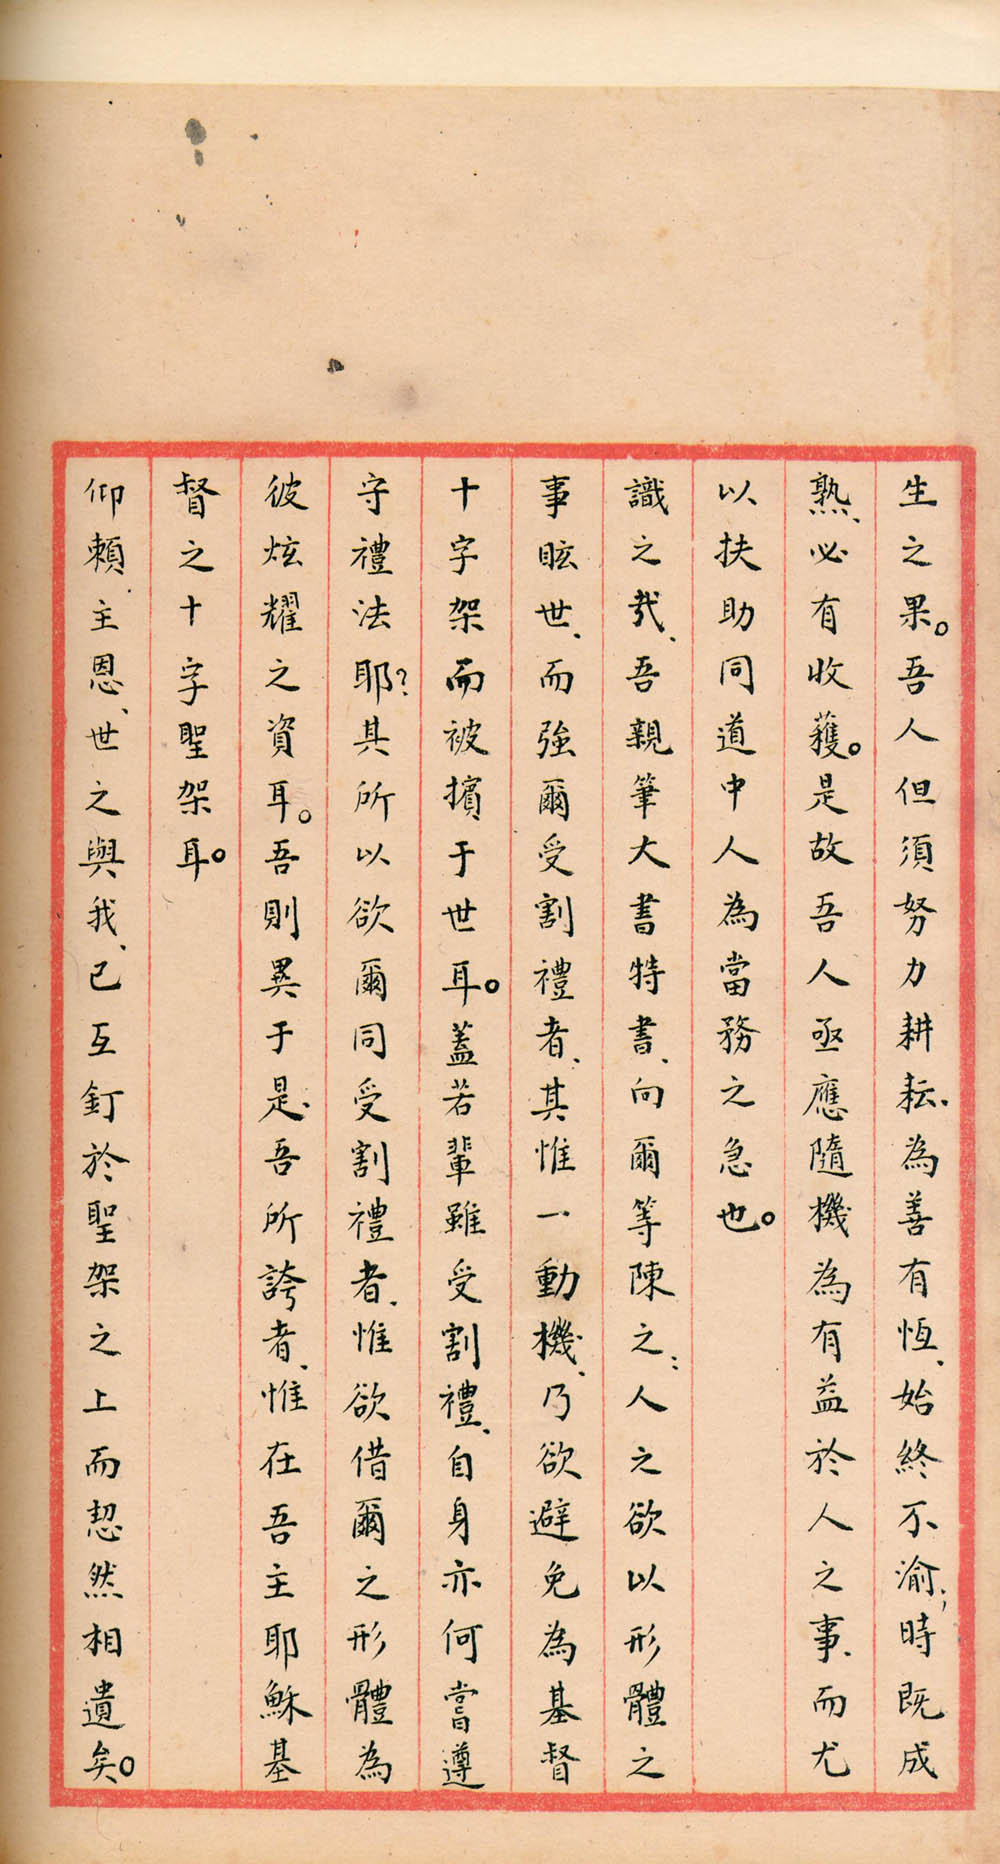 生之果。吾人但須努力耕耘、為善有恆、始終不渝；時既成
熟、必有收穫。是故吾人亟應隨機為有益於人之事、而尤
以扶助同道中人為當務之急也。
識之哉、吾親筆大書特書、向爾等陳之：人之欲以形體之
事眩世、而強爾受割禮者、其惟一動機、乃欲避免為基督
十字架而被擯于世耳。蓋若輩雖受割禮、自身亦何嘗遵
守禮法耶？其所以欲爾同受割禮者、惟欲借爾之形體為
彼炫耀之資耳。吾則異于是、吾所誇者、惟在吾主耶穌基
督之十字聖架耳。
仰賴主恩、世之與我、已互釘於聖架之上而恝然相遺矣。